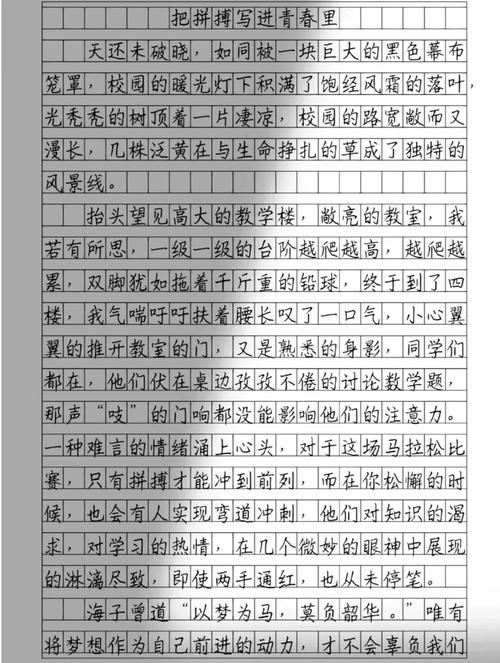 把拼搏写进青春里
天还未破晓，如同被一块巨大的黑色幕布
笼罩，校园的暖光灯下积满了饱经风霜的落叶，
光秃秃的树顶着一片凄凉，校园的路宽敞而又
漫长，几株泛黄在与生命挣扎的草成了独特的
风景线。
抬头望见高大的教学楼，敞亮的教室，我
若有所思，一级一级的台阶越爬越高，越爬越
累，双脚犹如拖着千斤重的铅球，终于到了四
楼，我气喘吁吁扶着腰长叹了一口气，小心翼
翼的推开教室的门，又是熟悉的身影，同学们
都在，他们伏在桌边孜孜不倦的讨论数学题，
那声“吱”的门响都没能影响他们的注意力。
一种难言的情绪涌上心头，对于这场马拉松比
赛，只有拼搏才能冲到前列，而在你松懈的时
候，也会有人实现弯道冲刺，他们对知识的渴
求，对学习的热情，在几个微妙的眼神中展现
的淋漓尽致，即使两手通红，也从未停笔。
海子曾道“以梦为马，莫负韶华。”唯有
将梦想作为自己前进的动力，才不会辜负我们